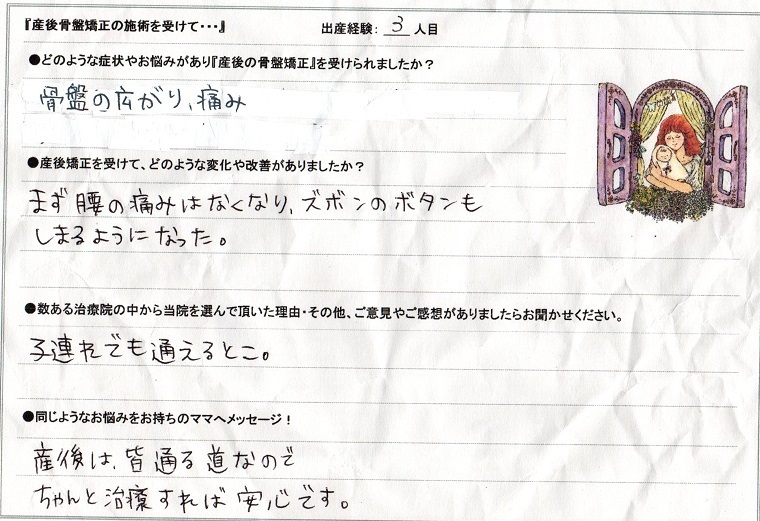 『産後骨盤矯正の施術を受けて・・・』 出産経験： 3 人目
●どのような症状やお悩みがあり『産後の骨盤矯正』を受けられましたか？
骨盤の広がり、痛み
●産後矯正を受けて、どのような変化や改善がありましたか？
まず腰の痛みはなくなり、ズボンのボタンも
しまるようになった。
●数ある治療院の中から当院を選んで頂いた理由・その他、ご意見やご感想がありましたらお聞かせください。
子連れでも通えるとこ。
●同じようなお悩みをお持ちのママへメッセージ！
産後は、皆通る道なので
ちゃんと治療すれば安心です。